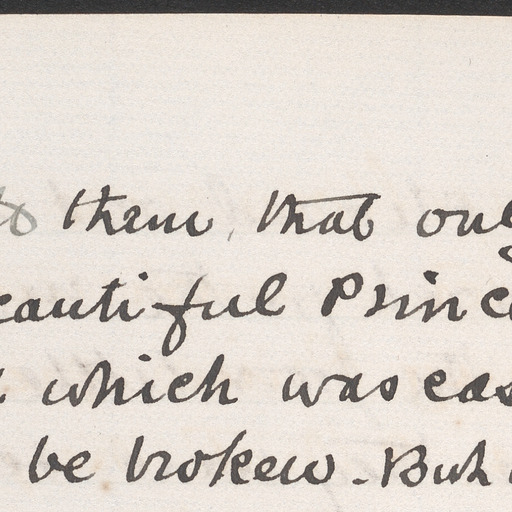 to them, that only
eautiful Princ
which was cas
be broken. But